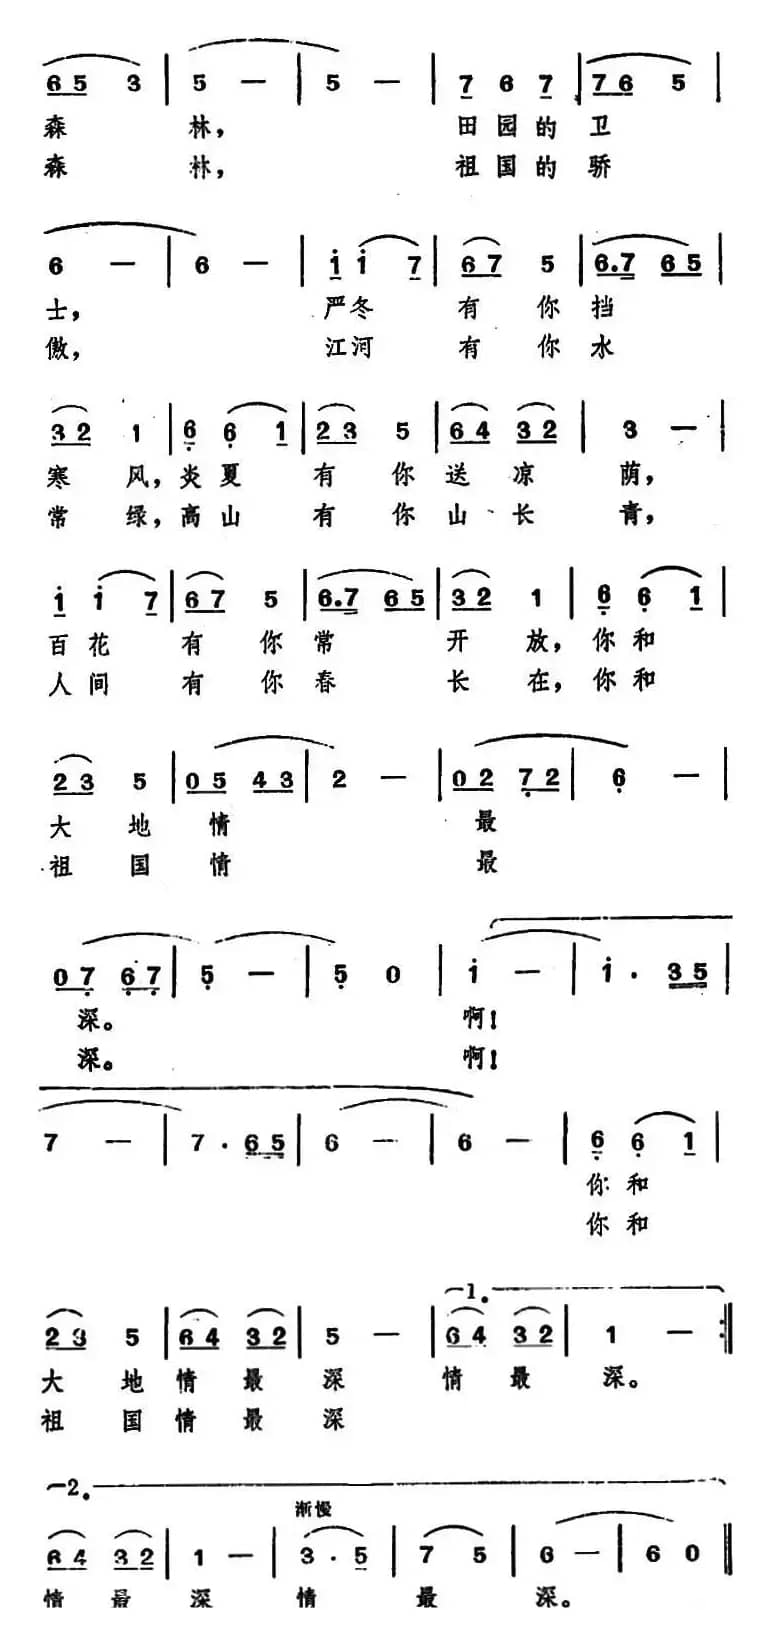 6 5 3 | 5 — | 5 — | 7 6 7 | 7 6 5 |
森 林， 田 园 的 卫
森 林， 祖 国 的 骄
6 — | 6 — | i i 7 | 6 7 5 | 6.7 6 5 |
士， 严 冬 有 你 挡
傲， 江 河 有 你 水
3 2 1 | 6 6 1 | 2 3 5 | 6 4 3 2 | 3 — |
寒 风，炎 夏 有 你 送 凉 荫，
常 绿，高 山 有 你 山 长 青，
i i 7 | 6 7 5 | 6.7 6 5 | 3 2 1 | 6 6 1 |
百 花 有 你 常 开 放，你 和
人 间 有 你 春 长 在，你 和
2 3 5 | 0 5 4 3 | 2 — | 0 2 7 2 | 6 — |
大 地 情 最
祖 国 情 最
0 7 6 7 | 5 — | 5 0 | i — | i . 3 5 |
深。 啊！
深。 啊！
7 — | 7 . 6 5 | 6 — | 6 — | 6 6 1 |
你 和
你 和
1.
2 3 5 | 6 4 3 2 | 5 — | 6 4 3 2 | 1 — :||
大 地 情 最 深 情 最 深。
祖 国 情 最 深
2.
渐慢
6 4 3 2 | 1 — | 3 . 5 | 7 5 | 6 — | 6 0 ||
情 最 深 情 最 深。